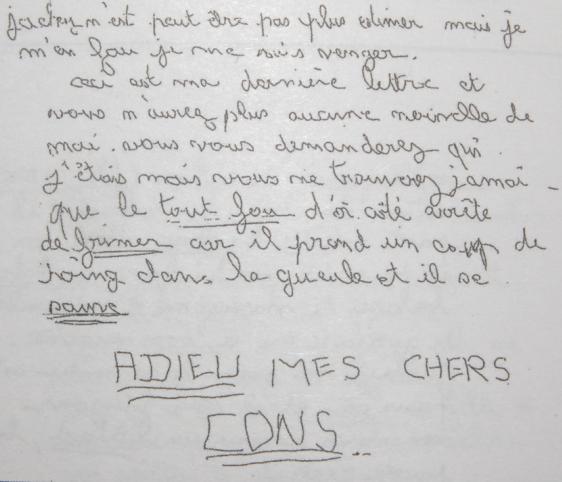 m'est peut être pas plus estimer mais je
m'en fou je me suis venger.
ceci est ma dernière lettre et
vous n'aurez plus aucune nouvelle de
moi. vous vous demanderez qui
j'étais mais vous ne trouverez jamai
que le tout fou d'à côté
de car il prend un coup de
poing dans la gueule et il se
sauve
ADIEU MES CHERS
CONS...